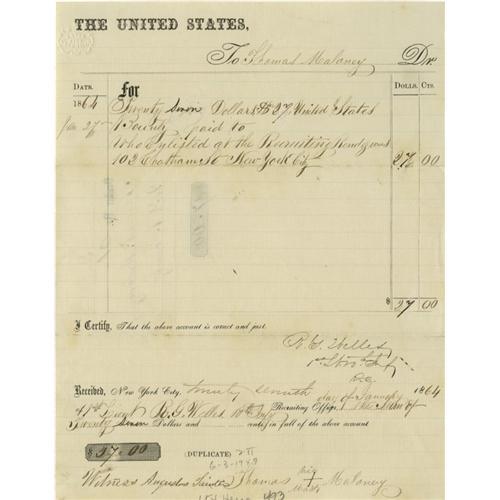 THE UNITED STATES,
To Thomas Maloney Dr
DATE. For DOLLS. CTS.
1864 Twenty Seven Dollars $27, United States
Jan 27 Bounty paid to
Who Enlisted at the Recruiting Rendezvous
102 Chatham St New York City 27 00
$ 27 00
I Certify, That the above account is correct and just.
R. G. Welles
1st
Received, New York City, twenty seventh day of January 1864
of Lieut R. G. Welles 10th Inf Recruiting Officer, the sum of
Twenty Seven Dollars and cents, in full of the above account
$27.00
(DUPLICATE) 211
6-3-1943
Witness Augustus Thomas his + mark Maloney
493